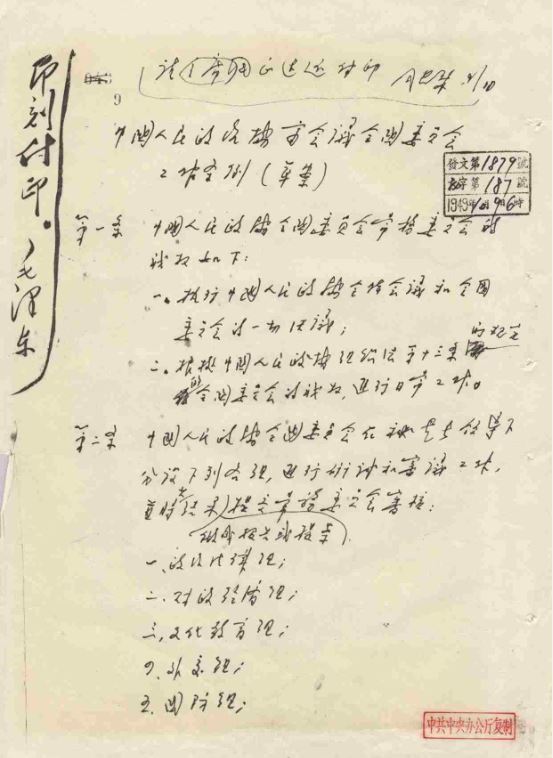 即刻付印。毛泽东
9
请
付印
中国人民政治协商会议全国委员会
工作条例(草案)
發文第1879號
187號
1949年10月9日6時
第一条 中国人民政协全国委员会常务委员会的
职权如下:
一、执行中国人民政协全体会议和全国
委员会的一切决议;
二、根据中国人民政协组织法第十三条的规定
全国委员会的职权,进行日常工作。
第二条 中国人民政协全国委员会在领导下
分设下列各组,进行研讨和审议工作,
提交常务委员会審核:
一、政治法律组;
二、财政经济组;
三、文化教育组;
四、外交组;
五、国防组;
中共中央办公厅复制